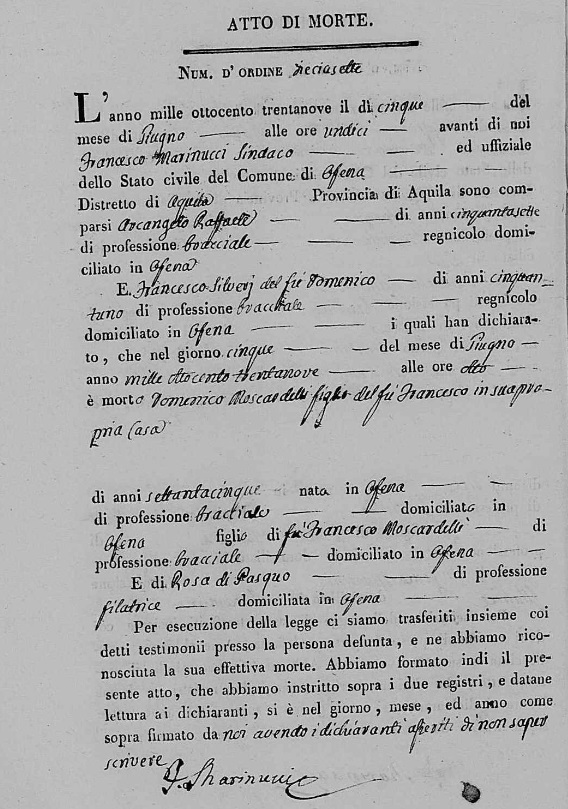 ATTO DI MORTE.
NUM. D' ORDINE dieciasette
L'anno mille ottocento trentanove il dì cinque — del
mese di Giugno — alle ore undici — avanti di noi
Francesco Marinucci Sindaco — — ed uffiziale
dello Stato civile del Comune di Ofena — —
Distretto di Aquila — Provincia di Aquila sono com-
parsi Arcangelo Raffaele — — di anni cinquantasette
di professione bracciale — — — regnicolo domi-
ciliato in Ofena
E Francesco Silverj del fù Domenico — di anni cinquan-
tuno di professione bracciale — — regnicolo
domiciliato in Ofena — — — i quali han dichiara-
to, che nel giorno cinque — — del mese di Giugno —
anno mille ottocento trentanove — alle ore otto —
è morto Domenico Moscardelli figlio del fù Francesco in sua pro-
pria Casa
di anni settantacinque — nata in Ofena — —
di professione bracciale — — domiciliata in
Ofena figlio di fù Francesco Moscardelli — di
professione bracciale — — domiciliato in Ofena — —
E di Rosa di Pasquo — — di professione
filatrice — domiciliata in Ofena — —
Per esecuzione della legge ci siamo trasferiti insieme coi
detti testimonii presso la persona defunta, e ne abbiamo rico-
nosciuta la sua effettiva morte. Abbiamo formato indi il pre-
sente atto, che abbiamo instritto sopra i due registri, e datane
lettura ai dichiaranti, si è nel giorno, mese, ed anno come
sopra firmato da noi avendo i dichiaranti asseriti di non saper
scrivere
F. Marinucci